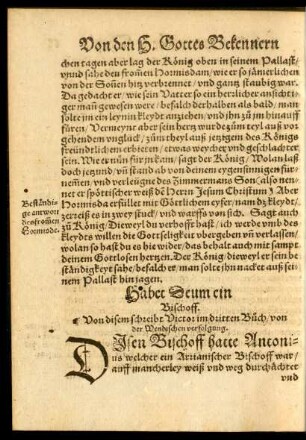 Von den H. Gottes Bekennern
chen tagen aber lag der König oben in seinem Pallast/
vnnd sahe den frommen Hormisdam, wie er so jämerlichen
von der Sonen hitz verbrennet / vnd gantz staubig war.
Da gedacht er / wie sein Vatter so ein herrlicher ansichti-
ger mañ gewesen were / befalch derhalben als bald / man
solte jm ein leynin kleydt anziehen / vnd jhn zů jm hinauff
füren. Vermeynt aber sein hertz wurde zům teyl auß vor
gehendem vnglück / zům theyl auß jetzigem des Königs
freundtlichem erbietten / etwas weycher vnd geschlachter
sein. Wie er nůn für jn kam / sagt der König / Wolan laß
doch jetzund / vñ stand ab von deinem halßstarrigen für-
nemen / vnd verleugne des Zimmermans Son / also nen-
net er spöttischer weiß dē Herrn Jesum Christum. Aber
Hormisda erfüllet mit Göttlichem eyfer / nam dz kleydt /
zerreiß es in zwey stuck / vnd warffs von sich. Sagt auch
zů König / Diewey l du verhofft hast / ich werde vmb des
Kleydts willen die Gottseligkeit vbergeben vñ verlassen /
wolan so hast du es hie wider / das behalt auch mit sampt
deinem Gottlosen hertzen. Der König / dieweyl er sein be
ständigkeyt sahe / befalch er / man solte jhn nacket auß sei-
nem Pallast hin jagen.
Beständi-
ge antwort
des fromen
Hormisde.
Habet Deum ein
Bischoff.
Von disem schreibt Victor im dritten Bůch / von
der Wendischen verfolgung.
DIsen Bischoff hatte Antoni-
us welcher ein Arrianischer Bischoff war /
auff mancherley weiß vnd weg durchächtet
vnd